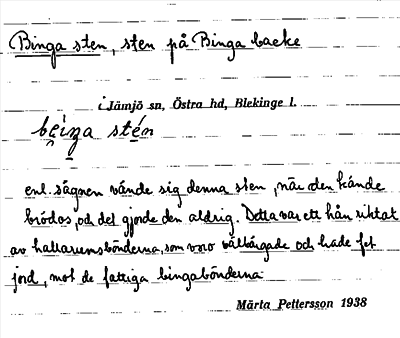 Binga sten, sten på Binga backe
i Jämjö sn, Östra hd, Blekinge l.
bei̯nga stén
enl. sägnen vände sig denna sten, när den kände
brödos, och det gjorde den aldrig. Detta var ett hån riktat
av hallarumsbönderna, som voro välbärgade och hade fet
jord, mot de fattiga bingabönderna
Märta Pettersson 1938